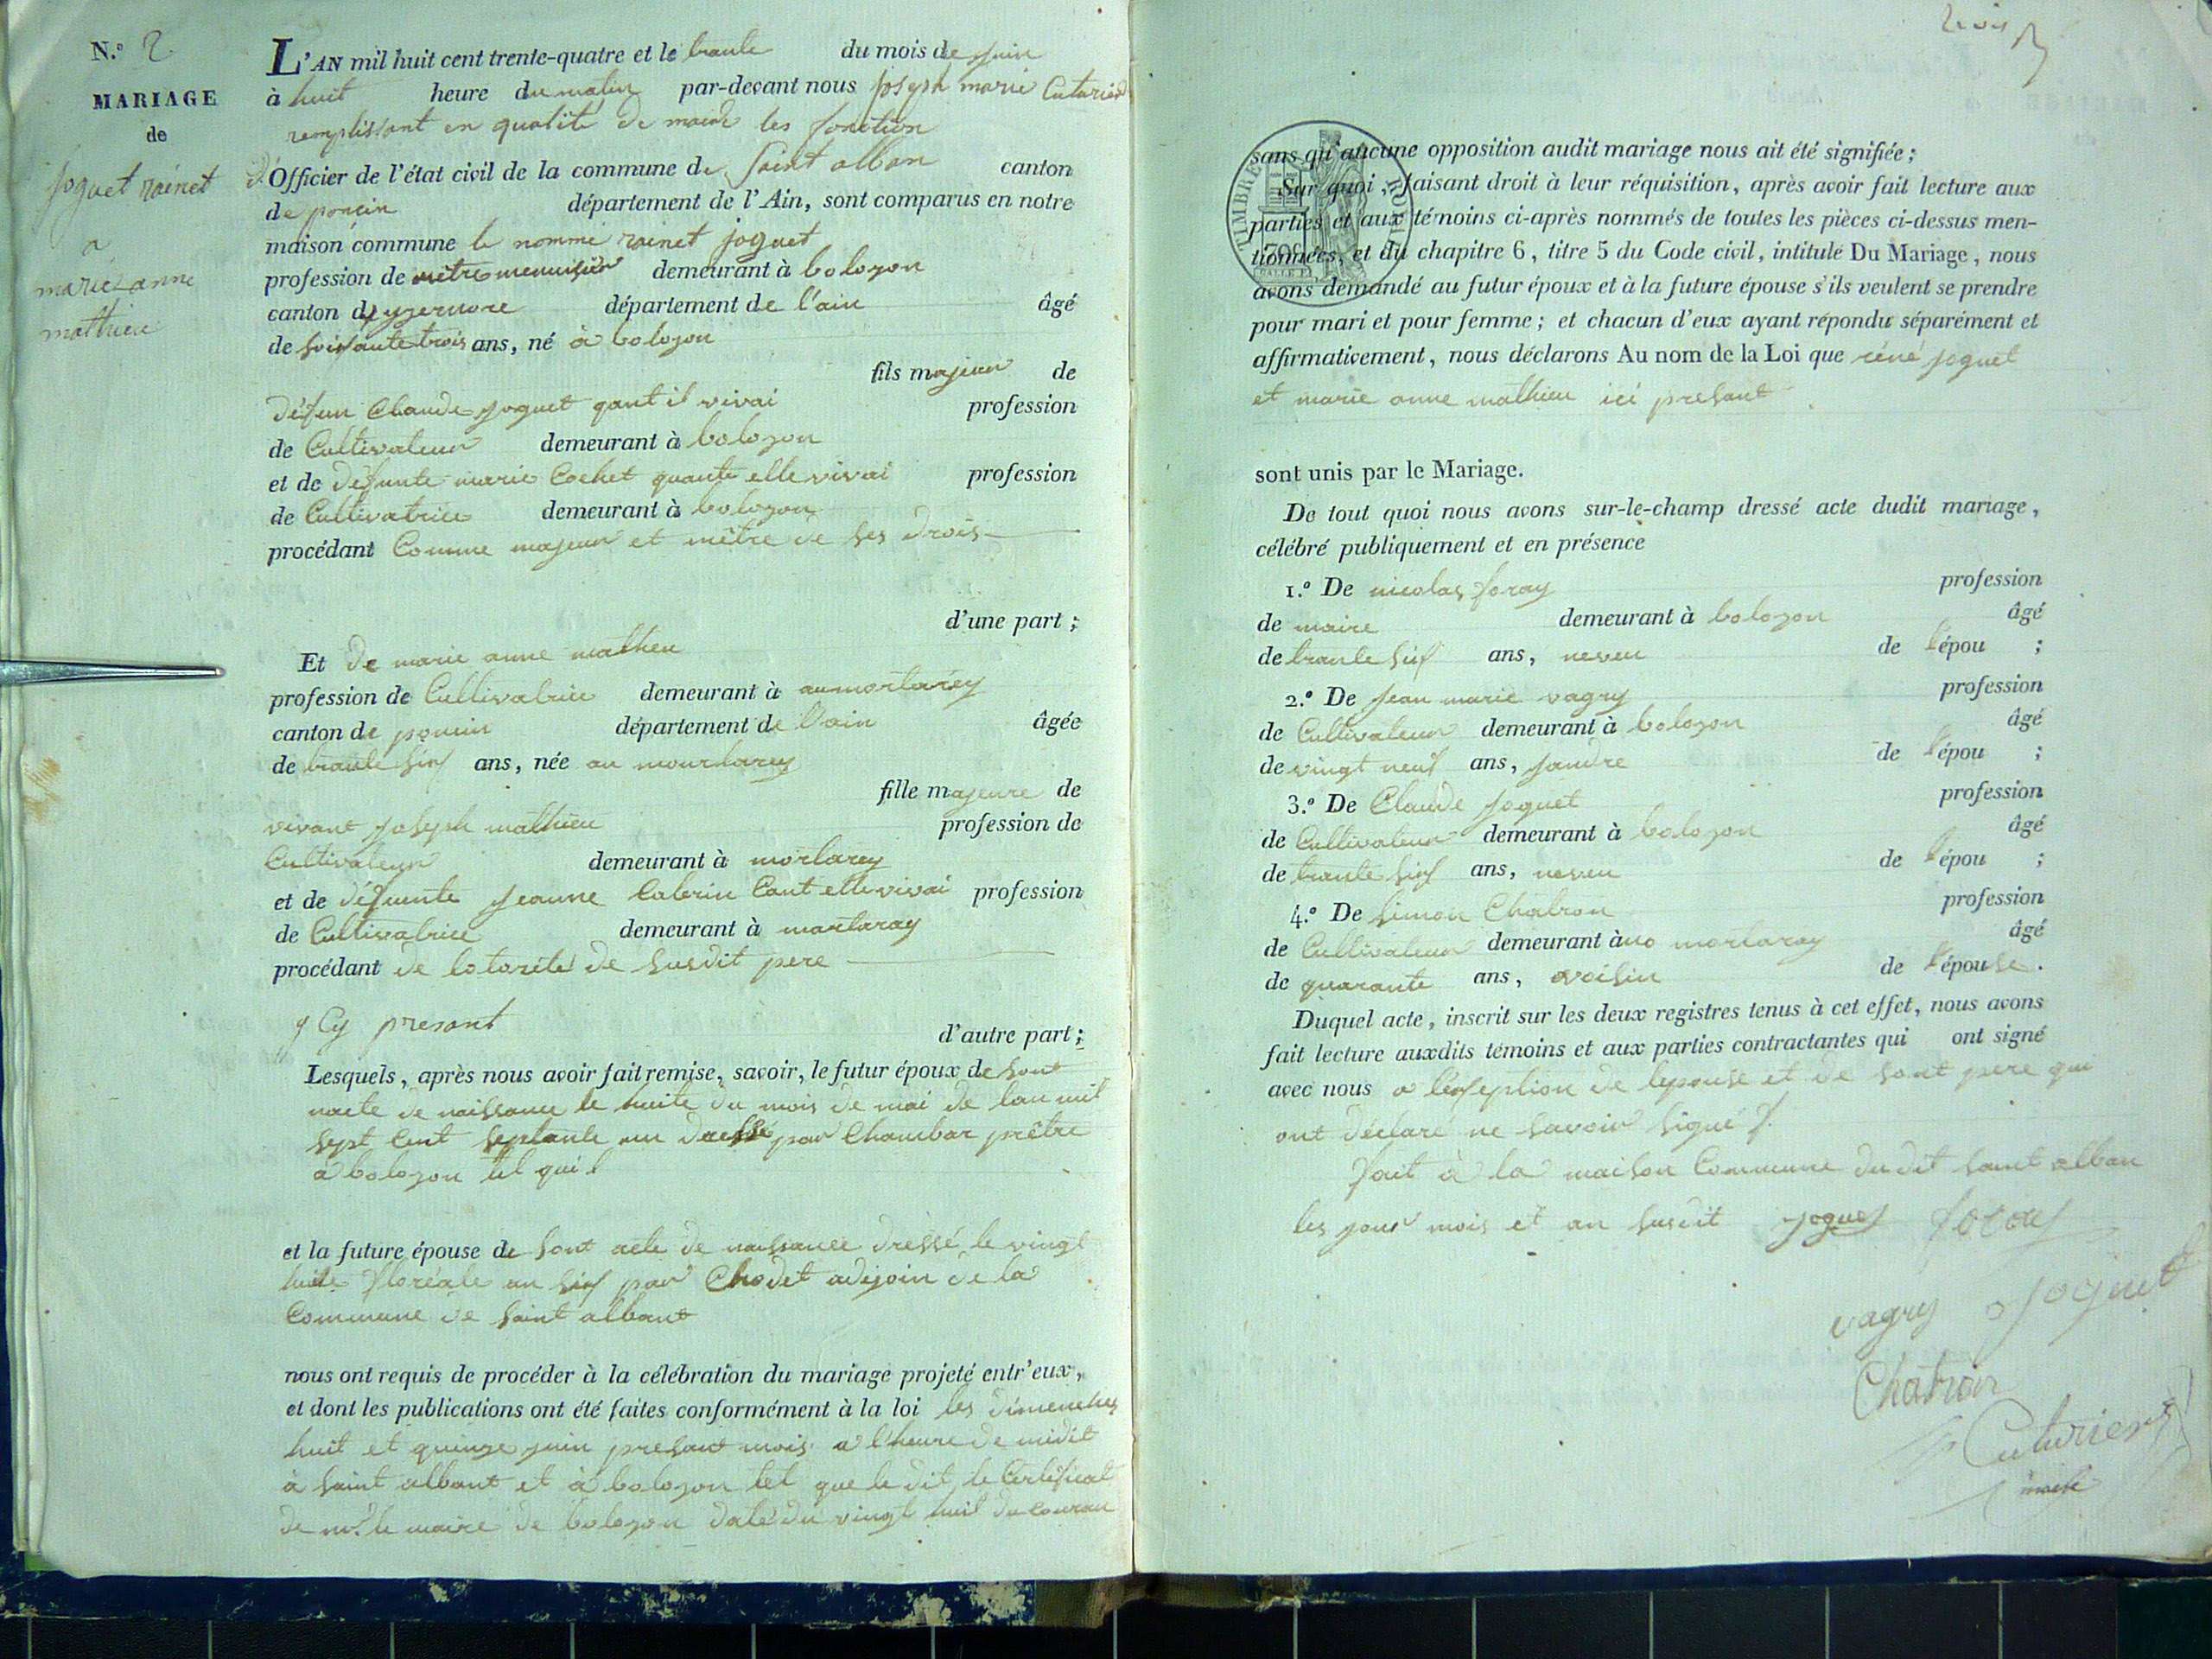 N.º 2
MARIAGE
de
joguet rainet
a
marie anne
mathieu
L'AN mil huit cent trente-quatre et le trante du mois de juin
à huit heure du matin par-devant nous joseph marie Cuturier
remplissant en qualité de maire les fonction
d'Officier de l'état civil de la commune de Saint alban canton
de poncin département de l'Ain, sont comparus en notre
maison commune le nommé rainet joguet
profession de mêtre menuisier demeurant à bolozon
canton d'yzernore département de l'ain âgé
de soissante trois ans, né à bolozon
fils majeur de
défun Claude joguet qant il vivai profession
de Cultivateur demeurant à bolozon
et de défunte marie Cochet quante elle vivai profession
de Cultivatrice demeurant à bolozon
procédant Comme majeur et mêtre de ses drois
d'une part ;
Et de marie anne matheu
profession de Cultivatrice demeurant à au mortarey
canton de poncin département de l'ain âgée
de trante six ans, née au mourtarey
fille majeure de
vivant joseph mathieu profession de
Cultivateur demeurant à mortarey
et de défunte jeanne Caterin Cant elle vivai profession
de Cultivatrice demeurant à mortaray
procédant de lotorité de susdit pere
y Cy presant
d'autre part ;
Lesquels, après nous avoir fait remise, savoir, le futur époux de sont
nacte de naissance le huite du mois de mai de lan mil
sept Cent septante un dressé par Chambar prêtre
à bolozon tel quil
et la future épouse de sont acte de naissance dressé le vingt
huite floréale an six par Chodet adejoin de la
Commune de Saint albant
nous ont requis de procéder à la célébration du mariage projeté entr'eux,
et dont les publications ont été faites conformément à la loi les dimenches
huit et quinze juin presant mois a l'heure de midit
à Saint albant et à bolozon tel que le dit le Certificat
de mr le maire de bolozon daté du vingt huit du couran
trois
TIMBRE ROYAL
70c
sans qu'aucune opposition audit mariage nous ait été signifiée ;
Sur quoi, faisant droit à leur réquisition, après avoir fait lecture aux
parties et aux témoins ci-après nommés de toutes les pièces ci-dessus men-
tionnées, et du chapitre 6, titre 5 du Code civil, intitulé Du Mariage, nous
avons demandé au futur époux et à la future épouse s'ils veulent se prendre
pour mari et pour femme ; et chacun d'eux ayant répondu séparément et
affirmativement, nous déclarons Au nom de la Loi que réné joguet
et marie anne mathieu ici presant
sont unis par le Mariage.
De tout quoi nous avons sur-le-champ dressé acte dudit mariage,
célébré publiquement et en présence
1.º De nicolas foray profession
de maire demeurant à bolozon âgé
de trante six ans, neveu de l'épou ;
2.º De jean marie vagry profession
de Cultivateur demeurant à bolozon âgé
de vingt neuf ans, jandre de l'épou ;
3.º De Claude joguet profession
de Cultivateur demeurant à bolozon âgé
de trante six ans, neveu de l'épou ;
4.º De Simon Chatron profession
de Cultivateur demeurant à uo mortaray âgé
de quarante ans, voisin de l'épouse.
Duquel acte, inscrit sur les deux registres tenus à cet effet, nous avons
fait lecture auxdits témoins et aux parties contractantes qui ont signé
avec nous a lexseption de lepouse et de sont pere qui
ont déclaré ne savoir signé
fait à la maison Commune du dit saint alban
les jour mois et an susdit joguet foray
vagry joguet
Chatron
Cuturier
maire